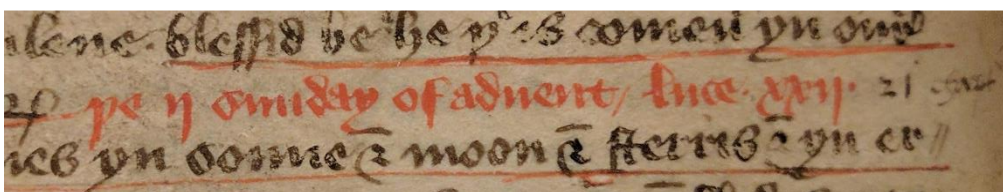 blessid be he þͭ is comen yn oure
þe ii sunday of aduent / luce · xxii · 21
yn sonne & moon & sterris & yn er//